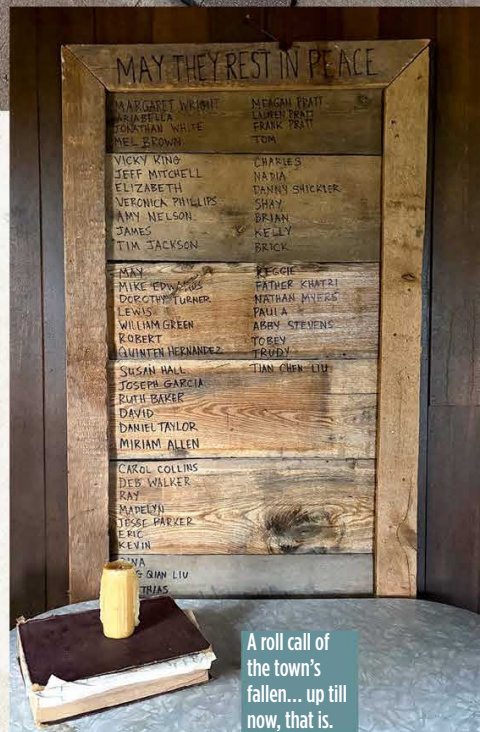 MAY THEY REST IN PEACE
MARGARET WRIGHT
JONATHAN WHITE
MEL BROWN
VICKY KING
JEFF MITCHELL
ELIZABETH
VERONICA PHILLIPS
AMY NELSON
JAMES
TIM JACKSON
MAY
MIKE EDWARDS
DOROTHY TURNER
LEWIS
WILLIAM GREEN
ROBERT
QUINTEN HERNANDEZ
SUSAN HALL
JOSEPH GARCIA
RUTH BAKER
DAVID
DANIEL TAYLOR
MIRIAM ALLEN
CAROL COLLINS
DEB WALKER
RAY
MADELYN
JESSE PARKER
ERIC
KEVIN
QIAN LIU
MEAGAN PRATT
LAUREN PRATT
FRANK PRATT
TOM
CHARLES
NADIA
DANNY SHICKLER
SHAY
BRIAN
KELLY
BRICK
REGGIE
FATHER KHATRI
NATHAN MYERS
PAULA
ABBY STEVENS
TOBEY
TRUDY
TIAN CHEN LIU
A roll call of
the town's
fallen... up till
now, that is.